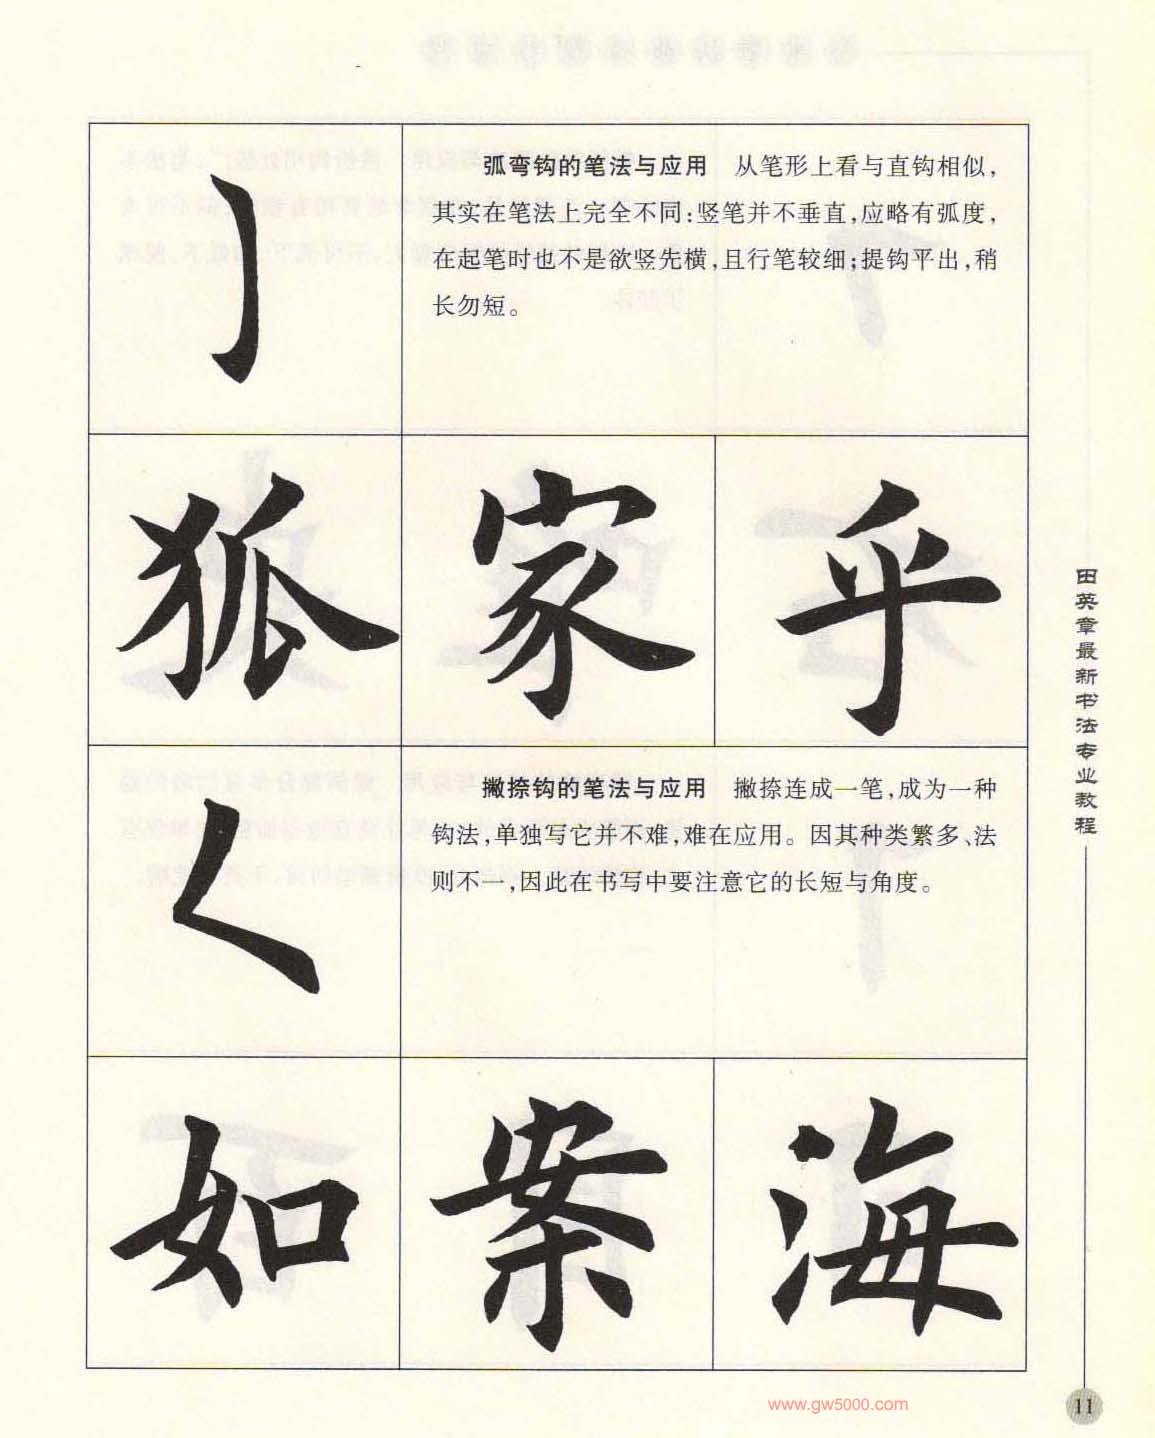 弧弯钩的笔法与应用 从笔形上看与直钩相似，
其实在笔法上完全不同：竖笔并不垂直，应略有弧度，
在起笔时也不是欲竖先横，且行笔较细；提钩平出，稍
长勿短。
狐 家 乎
撇捺钩的笔法与应用 撇捺连成一笔，成为一种
钩法，单独写它并不难，难在应用。因其种类繁多、法
则不一，因此在书写中要注意它的长短与角度。
如 案 海
田英章最新书法专业教程
11
www.gw5000.com